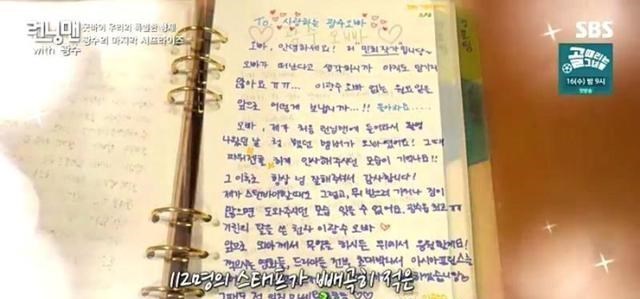 런닝맨
굿바이 우리의 특별한 형제
광수의 마지막 서프라이즈
with 광수
SBS
골때리는
그녀들
16(수) 밤 9시
To. 사랑하는 광수오빠
오빠, 안녕하세요! 저
오빠가 떠난다고 생각하시가 아직도 믿기지
않아요 ㅠㅠ... 이광수 오빠 없는 월요일은
앞으로 어떻게 보냅니까...!! 돌아와요...
오빠, 제가 처음 런닝맨에 들어와서 촬영
나왔던 날 첫 했던 멤버가 오빠였어요! 그때
하게 인사해주시던 모습이 기억나요!!
그 이후로 항상 넘 잘해주셔서 감사합니다!
제가 스탠바이할때도 그렇고, 뭐
많으면 도와주시던 모습 잊을 수 없어요. 광수오빠 최고 ㅠㅠ
기린의 탈을 쓴 천사 이광수 오빠
앞으로 오빠께서 무엇을 하시든 뒤에서 응원할게요!
112명의 스태프가 빼곡히 적은